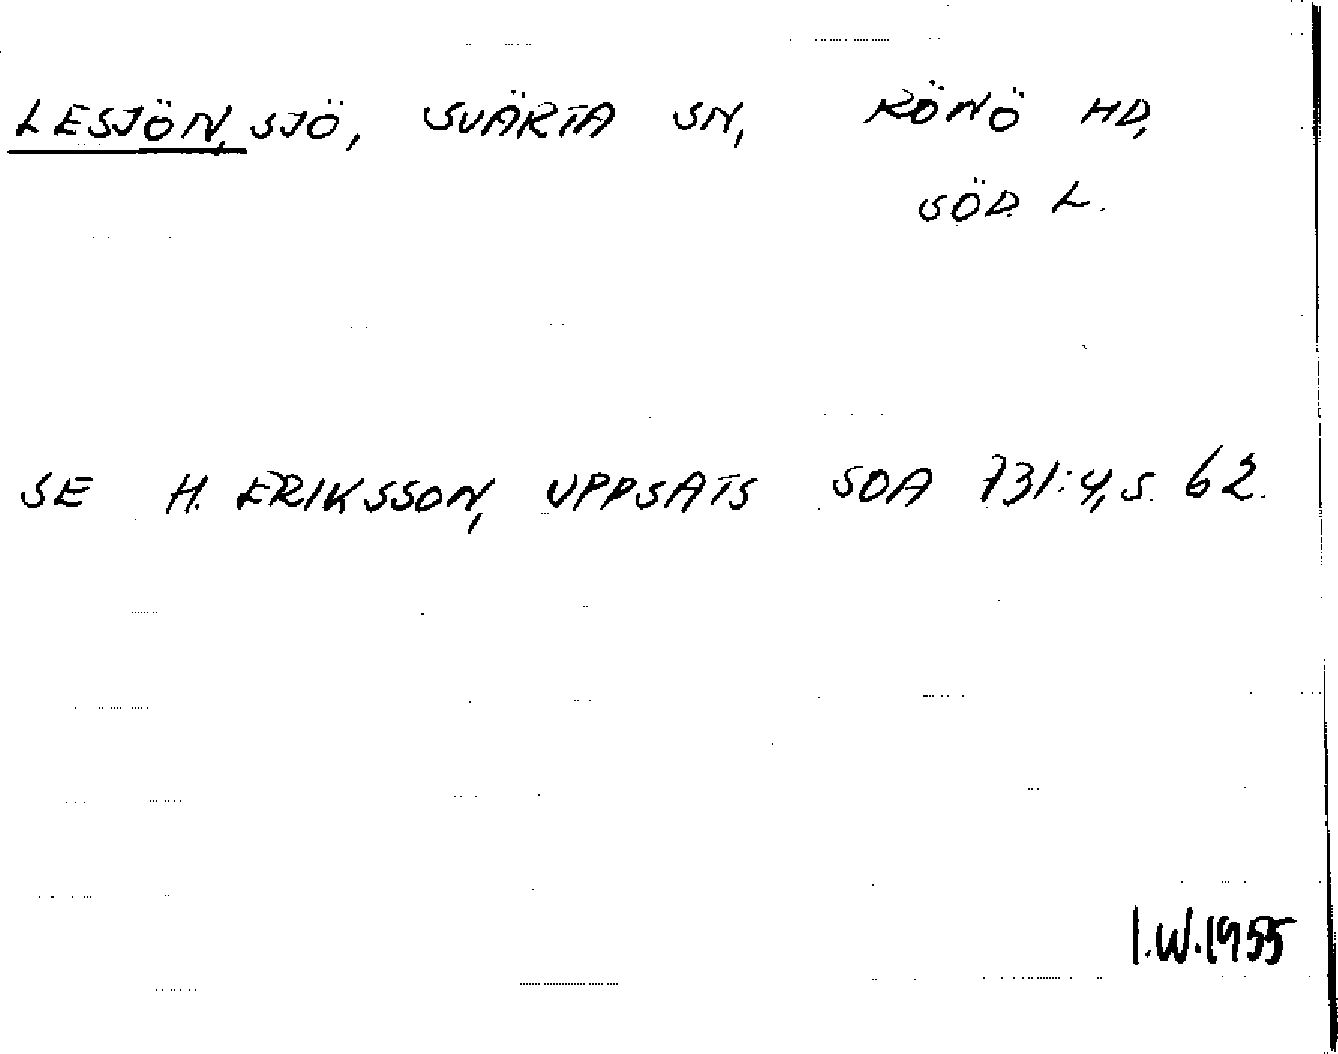 LESJÖN, SJÖ, SVÄRTA SN, RÖNÖ HD,
SÖD. L.
SE H. ERIKSSON, UPPSATS SOA 731:4, S. 62.
I.W.1955